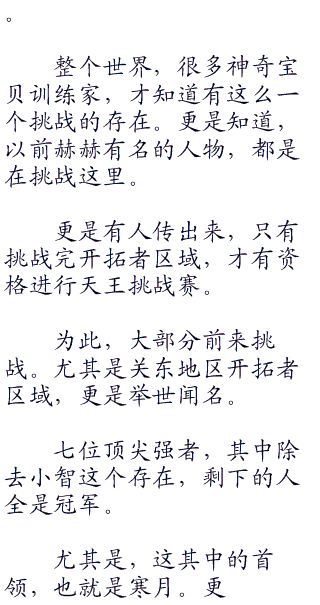 。
整个世界，很多神奇宝
贝训练家，才知道有这么一
个挑战的存在。更是知道，
以前赫赫有名的人物，都是
在挑战这里。
更是有人传出来，只有
挑战完开拓者区域，才有资
格进行天王挑战赛。
为此，大部分前来挑
战。尤其是关东地区开拓者
区域，更是举世闻名。
七位顶尖强者，其中除
去小智这个存在，剩下的人
全是冠军。
尤其是，这其中的首
领，也就是寒月。更